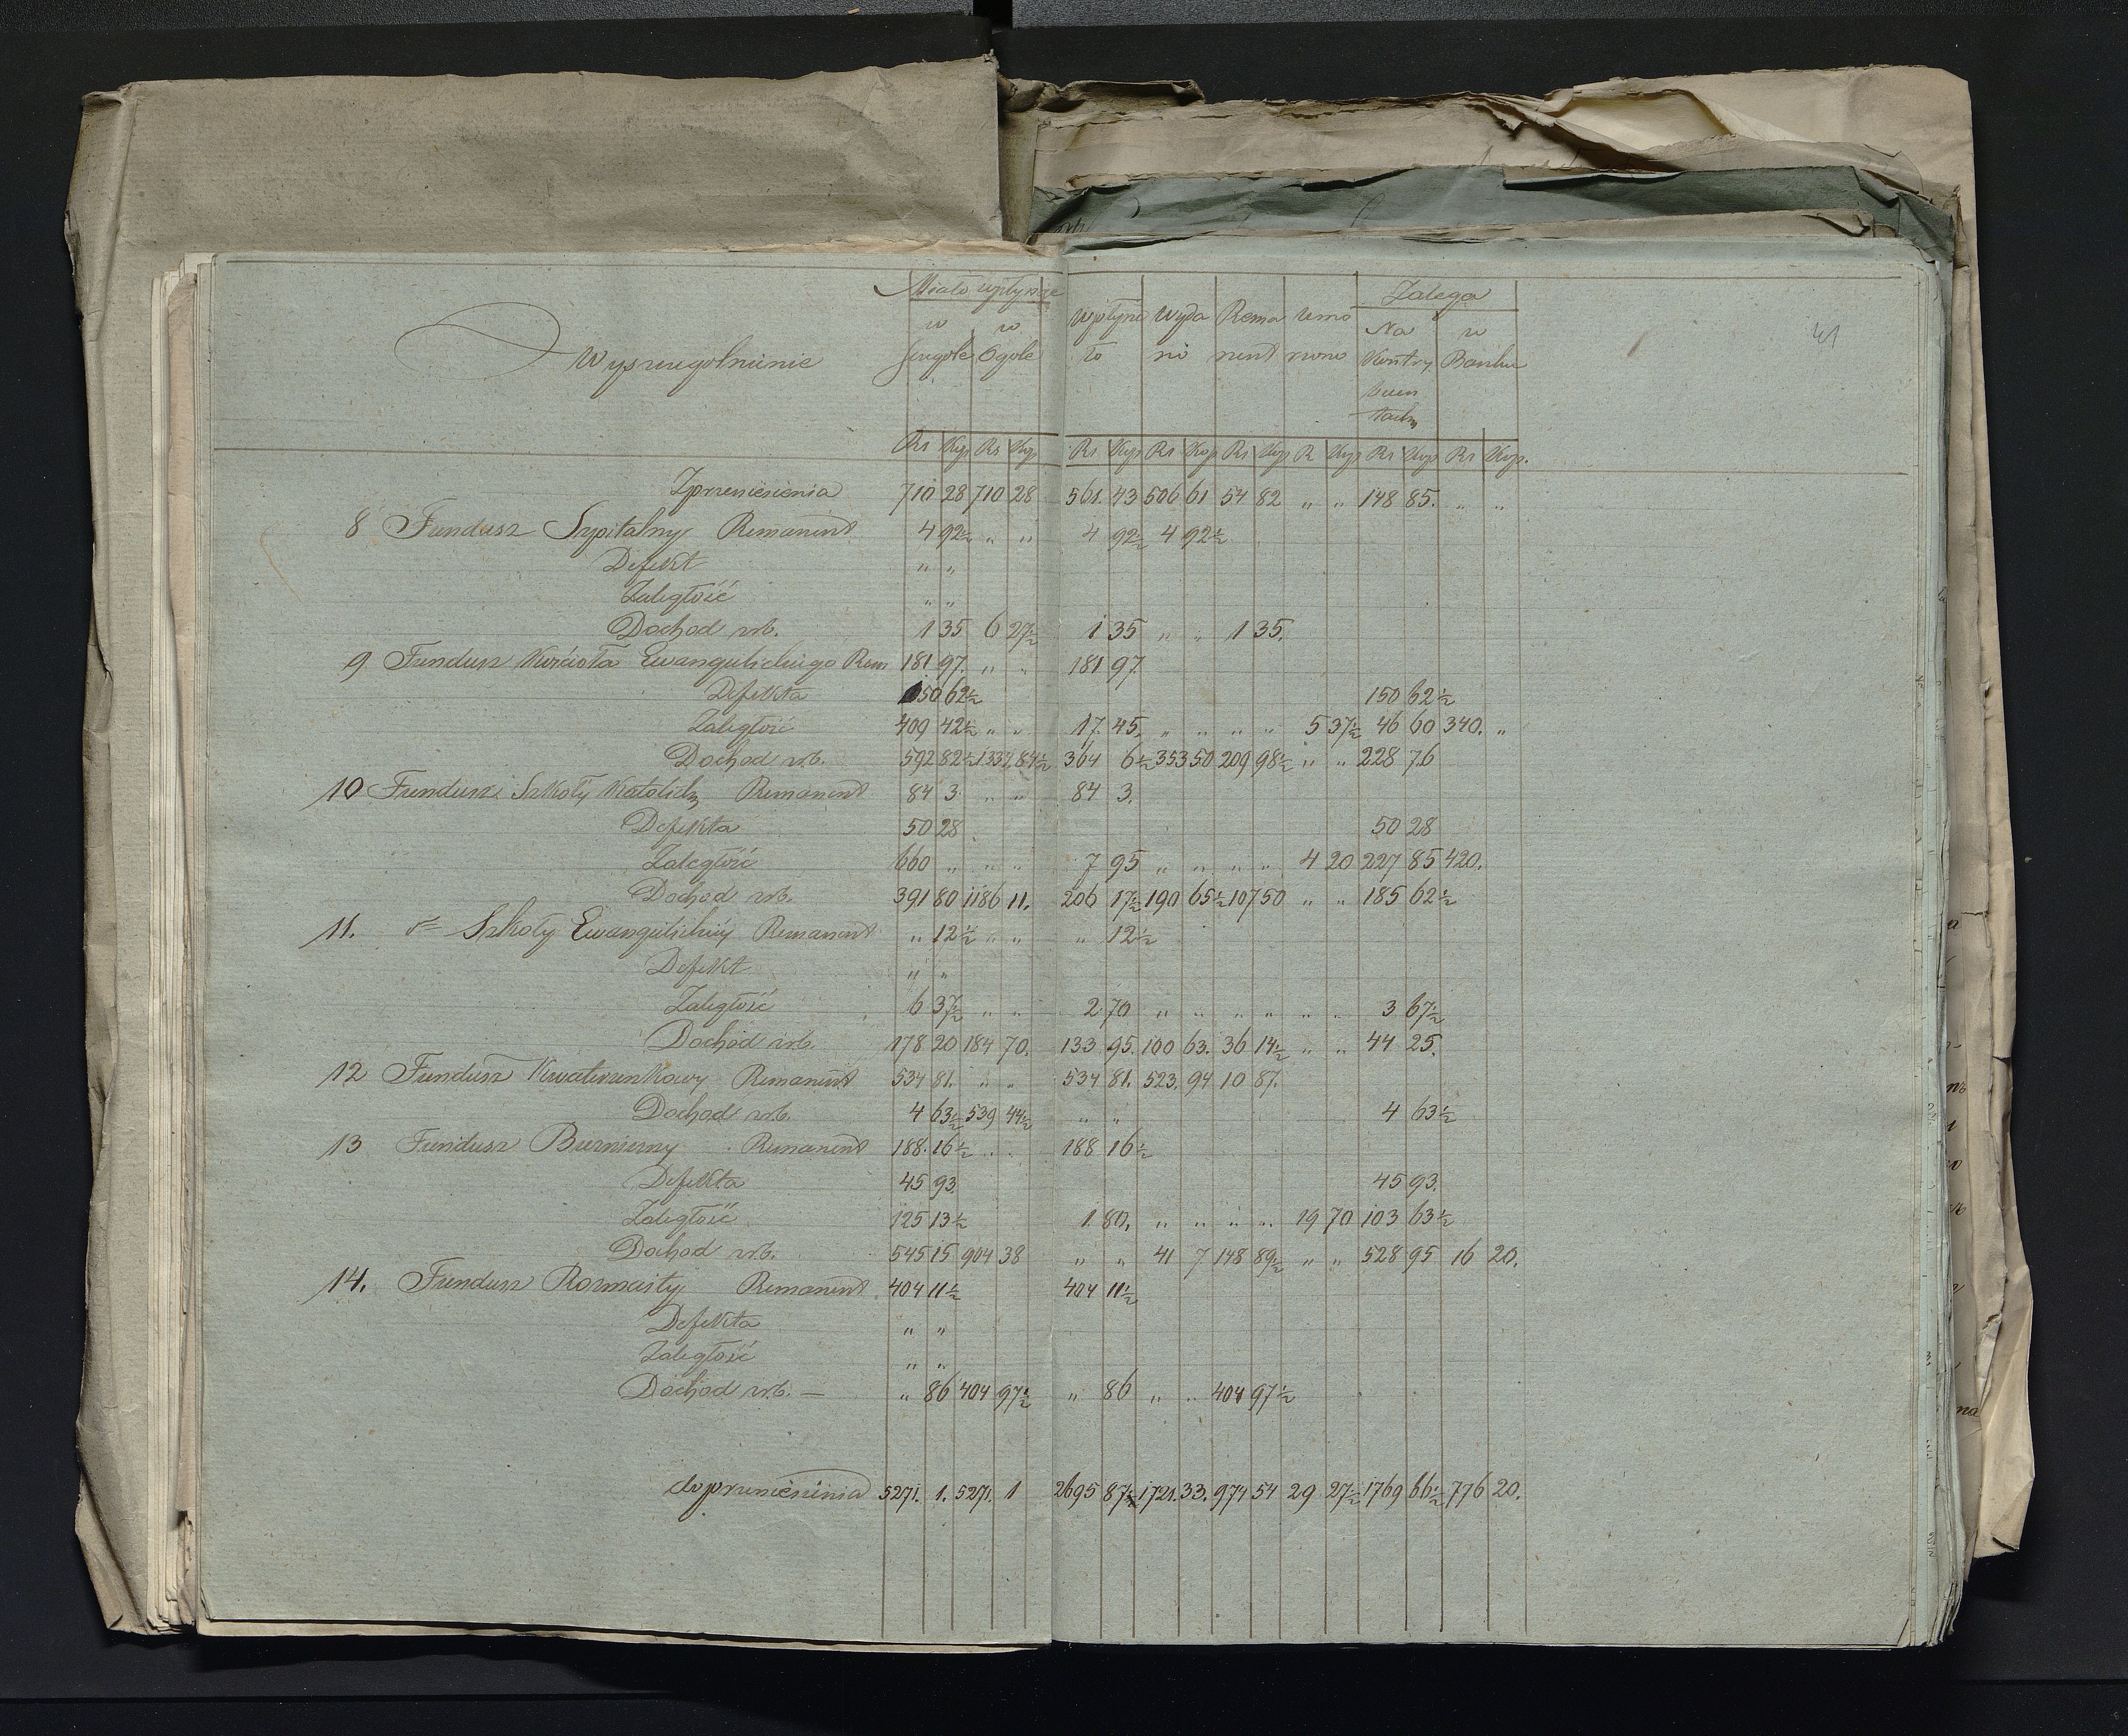 Miało wpłynąć Zalega
w w Wpłynę Wyda Rema Umo Na w
Wyszczegolnienie szczegole Ogole ło no nent rzono Kontry Banku
buen
tach
41
Rs Kop Rs Kop Rs Kop Rs Kop Rs Kop R Kop Rs Kop Rs Kop.
Zprzeniesienia 710 28 710 28 561. 43 506 61 54 82 " " 148 85. " "
8 Fundusz Szpitalny Remanent 4 92½ " " 4 92½ 4 92½
Defekt " "
Zaległość " "
Dochod rb. 1 35 6 27½ 1 35 " " 1 35.
9 Fundusz Kościoła Ewangelickiego Rem 181 97. " " 181 97.
Defekta 150 62½ 150 62½
Zaległość 409 42½ " " 17. 45. " " " " 5 37½ 46 60 340. "
Dochod rb. 592 82½ 1334 84½ 364 6½ 353 50 209 98½ " " 228 76
10 Fundusz Szkoły Katolick Remanent 84 3 " " 84 3.
Defekta 50 28 50 28
Zaległość 660 " " " 7 95 " " " " 4 20 227 85 420.
Dochod rb. 391 80 1186 11. 206 17½ 190 65½ 107 50 " " 185 62½
11. d Szkoły Ewangelickiey Remanent " 12½ " " " 12½
Defekt " "
Zaległość 6 37½ " " 2 70 " " " " " " 3 67½
Dochod rb. 178 20 184 70. 133 95. 100 63. 36 14½ " " 44 25.
12 Fundusz Kwaterunkowy Remanent 534 81. " " 534 81. 523. 94 10 87.
Dochod rb. 4 63½ 539 44½ " " 4 63½
13 Fundusz Remanent 188. 16½ " " 188 16½
Defekta 45 93. 45 93.
Zaległość 125 13½ 1. 80. " " " " 19 70 103 63½
Dochod rb. 545 15 904 38 " " 41 7 148 89½ " " 528 95 16 20.
14. Fundusz Rozmaity Remanent 404 11½ 404 11½
Defekta " "
Zaległość " "
Dochod rb. — " 86 404 97½ " 86 " " 404 97½
do przeniesienia 5271. 1. 5271. 1 2695 87½ 1721. 33. 974 54 29 27½ 1769 66½ 776 20.